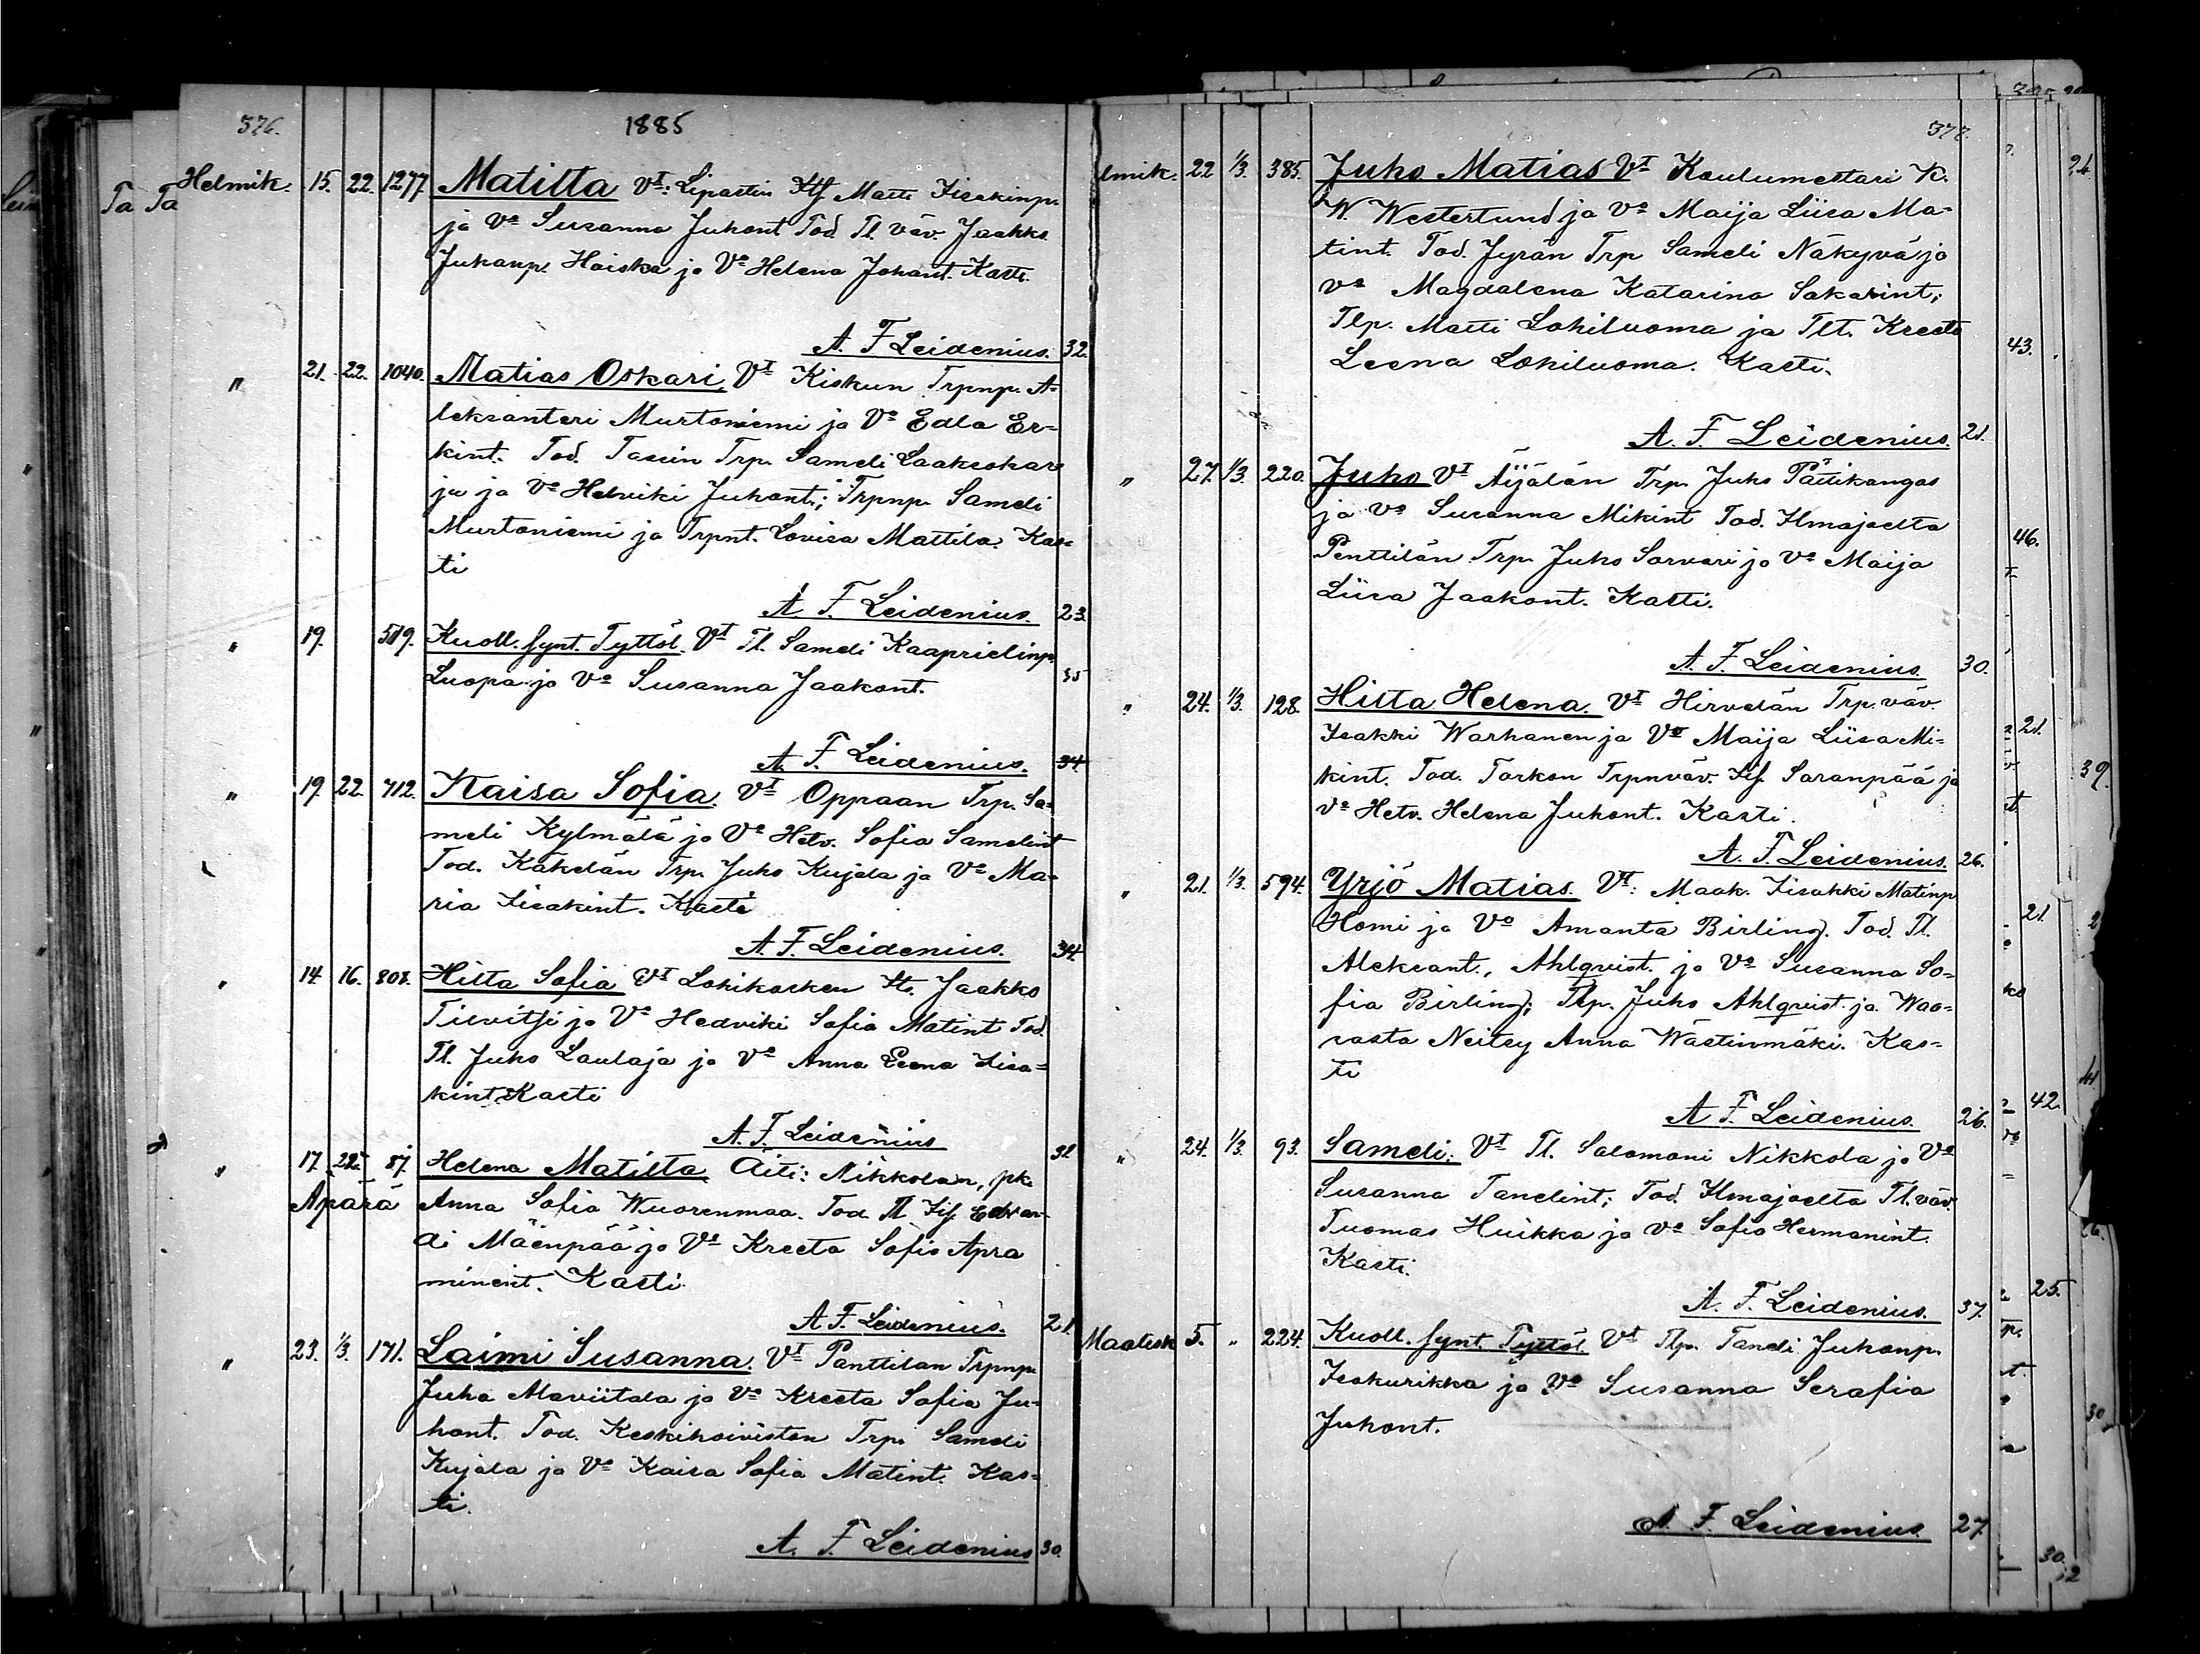 376.
1885
Helmik. 15. 22. 1277. Matilta VI: Lipastin Itf Matti Iisakinp.
ja Vo Susanna Juhont Tod. Tl. väv. Jaakko
Juhanp. Hoiska ja Vo Helena Johant. Kasti.
A. F. Leidenius. 32.
" 21. 22. 1040. Matias Oskari. VI Kiskun Trpnp. A-
leksanteri Murtoniemi ja Vo Edla Er-
kint. Tod. Tassin Trp. Sameli Laakeohar
ju ja Vo Hedviki Juhont.; Trpnp. Sameli
Murtoniemi ja Trpnt. Lovisa Mattila. Kas-
ti
A. F. Leidenius. 23.
" 19. 519. Kuoll. synt. Tyttöl. VI Tl. Sameli Kaaprielinp
Luopa ja Vo Susanna Jaakont. 35
A. F. Leidenius. 34.
" 19. 22. 712. Kaisa Sofia. VI Oppaan Trp. Sa-
meli Kylmälä ja Vo Hetv. Sofia Samelint
Tod. Käkelän Trp. Juho Kujala ja Vo Ma-
ria Iisakint. Kasti
A. F. Leidenius. 34.
" 14. 16. 808. Hilta Sofia VI Lohikosken Itr. Jaakko
Tievitsi ja Vo Hedviki Sofia Matint Tod.
Tl. Juho Laulaja ja Vo Anna Leena Iisa-
kint. Kasti
A. F. Leidenius 32
" 17. 22. 87. Helena Matilta. Äiti: Nikkolan, pk.
Apärä Anna Sofia Wuorenmaa. Tod. Tl. Itf Edvar-
di Mäenpää ja Vo Kreeta Sofia Apra
minint. Kasti.
A. F. Leidenius. 21.
" 23. 1/3. 171. Laimi Susanna. VI Panttilan Trpnp.
Juha Maviitala ja Vo Kreeta Sofia Ju-
hont. Tod. Keskihoiviston Trp. Sameli
Kujala ja Vo Kaisa Sofia Matint. Kas-
ti.
A. F. Leidenius 30.
377.
lmik. 22 1/3. 385. Juho Matias VI Koulumestari K.
W. Westerlund ja Vo Maija Liisa Ma-
tint. Tod. Jyrän Trp Sameli Näkyvä ja
Vo Magdalena Katarina Sakarint;
Tlp. Matti Lohiluoma ja Tlt. Kreeta
Leena Lohiluoma. Kasti.
A. F. Leidenius. 21.
" 27. 1/3. 220. Juho VI Äijälän Trp. Juho Päitikangas
ja Vo Susanna Mikint Tod. Ilmajoelta
Penttilän Trp. Juho Sarvari ja Vo Maija
Liisa Jaakont. Kasti.
A. F. Leidenius. 30.
" 24. 1/3. 128. Hilta Helena. VI Hirvelän Trp. väv.
Isakki Warhanen ja Vo Maija Liisa Mi-
kint. Tod. Torkon Trpnväv. Itf. Saranpää ja
Vo Hetv. Helena Juhont. Kasti.
A. F. Leidenius. 26.
" 21. 1/3. 594. Yrjö Matias. VI: Maak. Iisakki Matinp
Homi ja Vo Amanta Birling. Tod. Tl.
Aleksant. Ahlqvist. ja Vo Susanna So-
fia Birling; Tlp. Juho Ahlqvist ja Waa-
rasta Neitsy Anna Wästinmäki. Kas-
ti
A. F. Leidenius. 26.
" 24. 1/3. 93. Sameli. VI Tl. Salomoni Nikkola ja Vo
Susanna Tanelint; Tod. Ilmajoelta Tl. väv.
Tuomas Huikka ja Vo Sofia Hermanint.
Kasti.
A. F. Leidenius. 37.
Maalisk 5. " 224. Kuoll. synt. Tyttöl. VI Tlp. Taneli Juhanp.
Isokurikka ja Vo Susanna Serafia
Juhont.
A. F. Leidenius. 27.